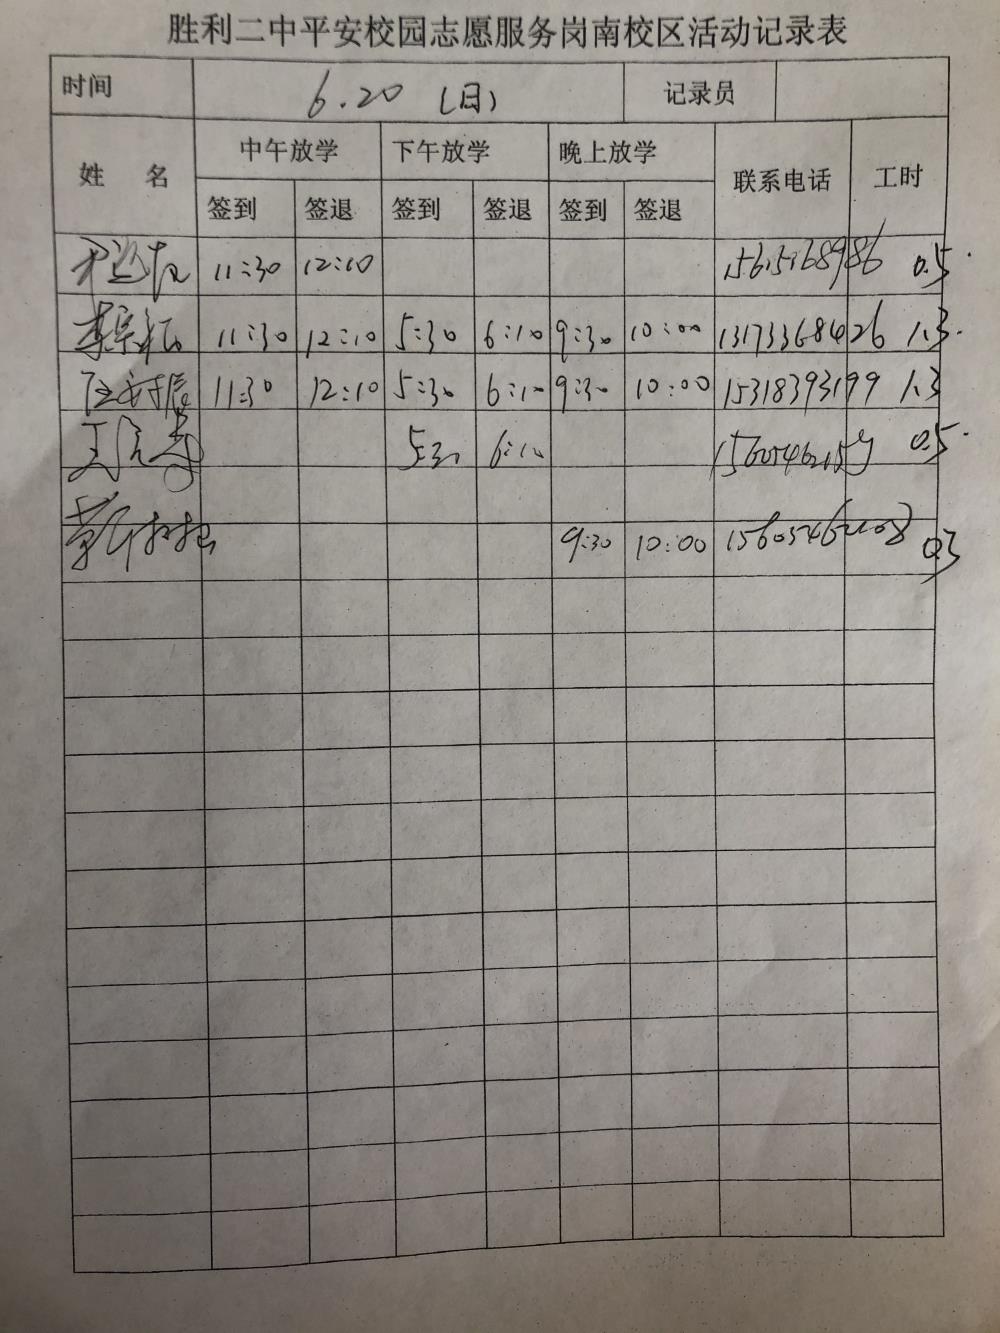 胜利二中平安校园志愿服务岗南校区活动记录表
时间 6.20 (日) 记录员
姓 名 中午放学 下午放学 晚上放学 联系电话 工时
签到 签退 签到 签退 签到 签退
11:30 12:10 15615168986 0.5
11:30 12:10 5:30 6:10 9:30 10:00 13173368426 1.3
11:30 12:10 5:30 6:10 9:30 10:00 15318393199 1.3
5:30 6:10 0.5
9:30 10:00 0.3